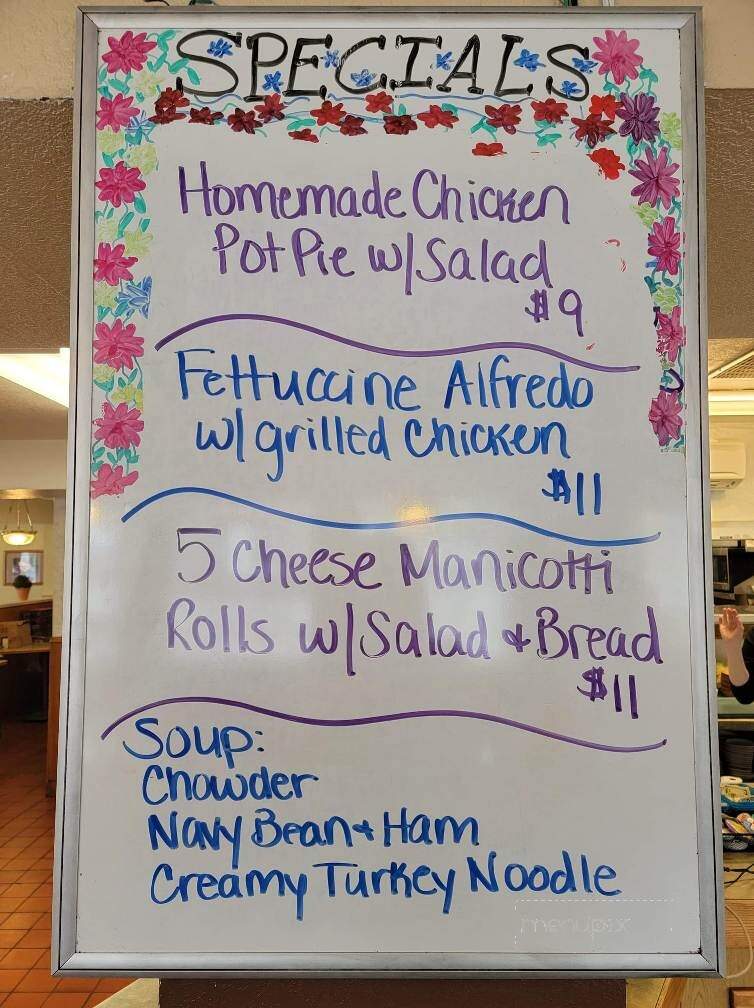 SPECIALS
Homemade Chicken
Pot Pie w/Salad
$9
Fettuccine Alfredo
w/grilled Chicken
$11
5 Cheese Manicotti
Rolls w/Salad & Bread
$11
Soup:
Chowder
Navy Bean & Ham
Creamy Turkey Noodle
menupix